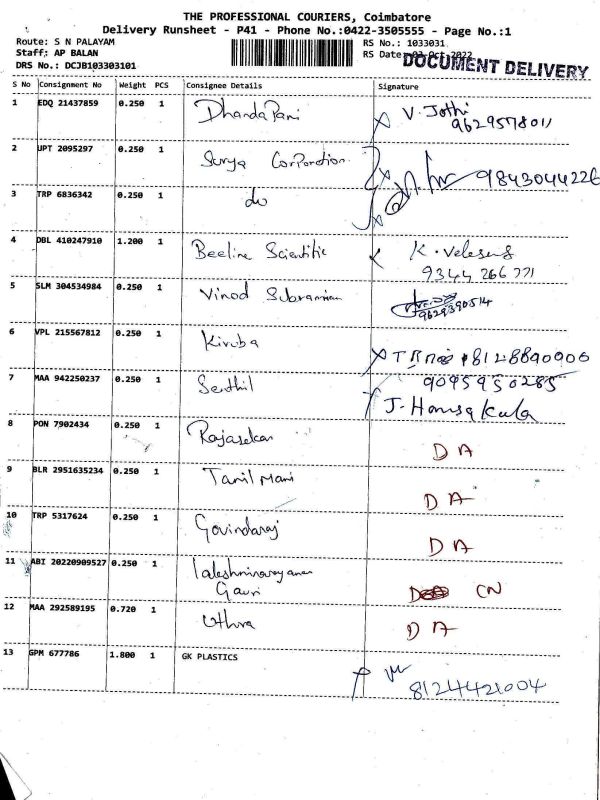 THE PROFESSIONAL COURIERS, Coimbatore
Delivery Runsheet - P41 - Phone No.:0422-3505555 - Page No.:1
Route: S N PALAYAM
RS No.: 1033031
Staff: AP BALAN
RS Date: 03 Oct 2022
DRS No.: DCJB103303101
DOCUMENT DELIVERY
S No Consignment No Weight PCS Consignee Details Signature
1 EDQ 21437859 0.250 1 DhandaPani V. Jothi
9629578011
2 UPT 2095297 0.250 1 Surya Corporation 9843044226
3 TRP 6836342 0.250 1 do
4 DBL 410247910 1.200 1 Beeline Scientific K.
9344 266 771
5 SLM 304534984 0.250 1 Vinod Subramnian
9629390514
6 VPL 215567812 0.250 1 Kiruba 8128890906
7 MAA 942250237 0.250 1 Senthil 9095950285
J. Hamsakala
8 PON 7902434 0.250 1 Rajasekar D A
9 BLR 2951635234 0.250 1 Tamil Mani D A
10 TRP 5317624 0.250 1 Govindaraj D A
11 ABI 20220909527 0.250 1 CN
Gauri
12 MAA 292589195 0.720 1 Uthra D A
13 GPM 677786 1.800 1 GK PLASTICS
8124421004